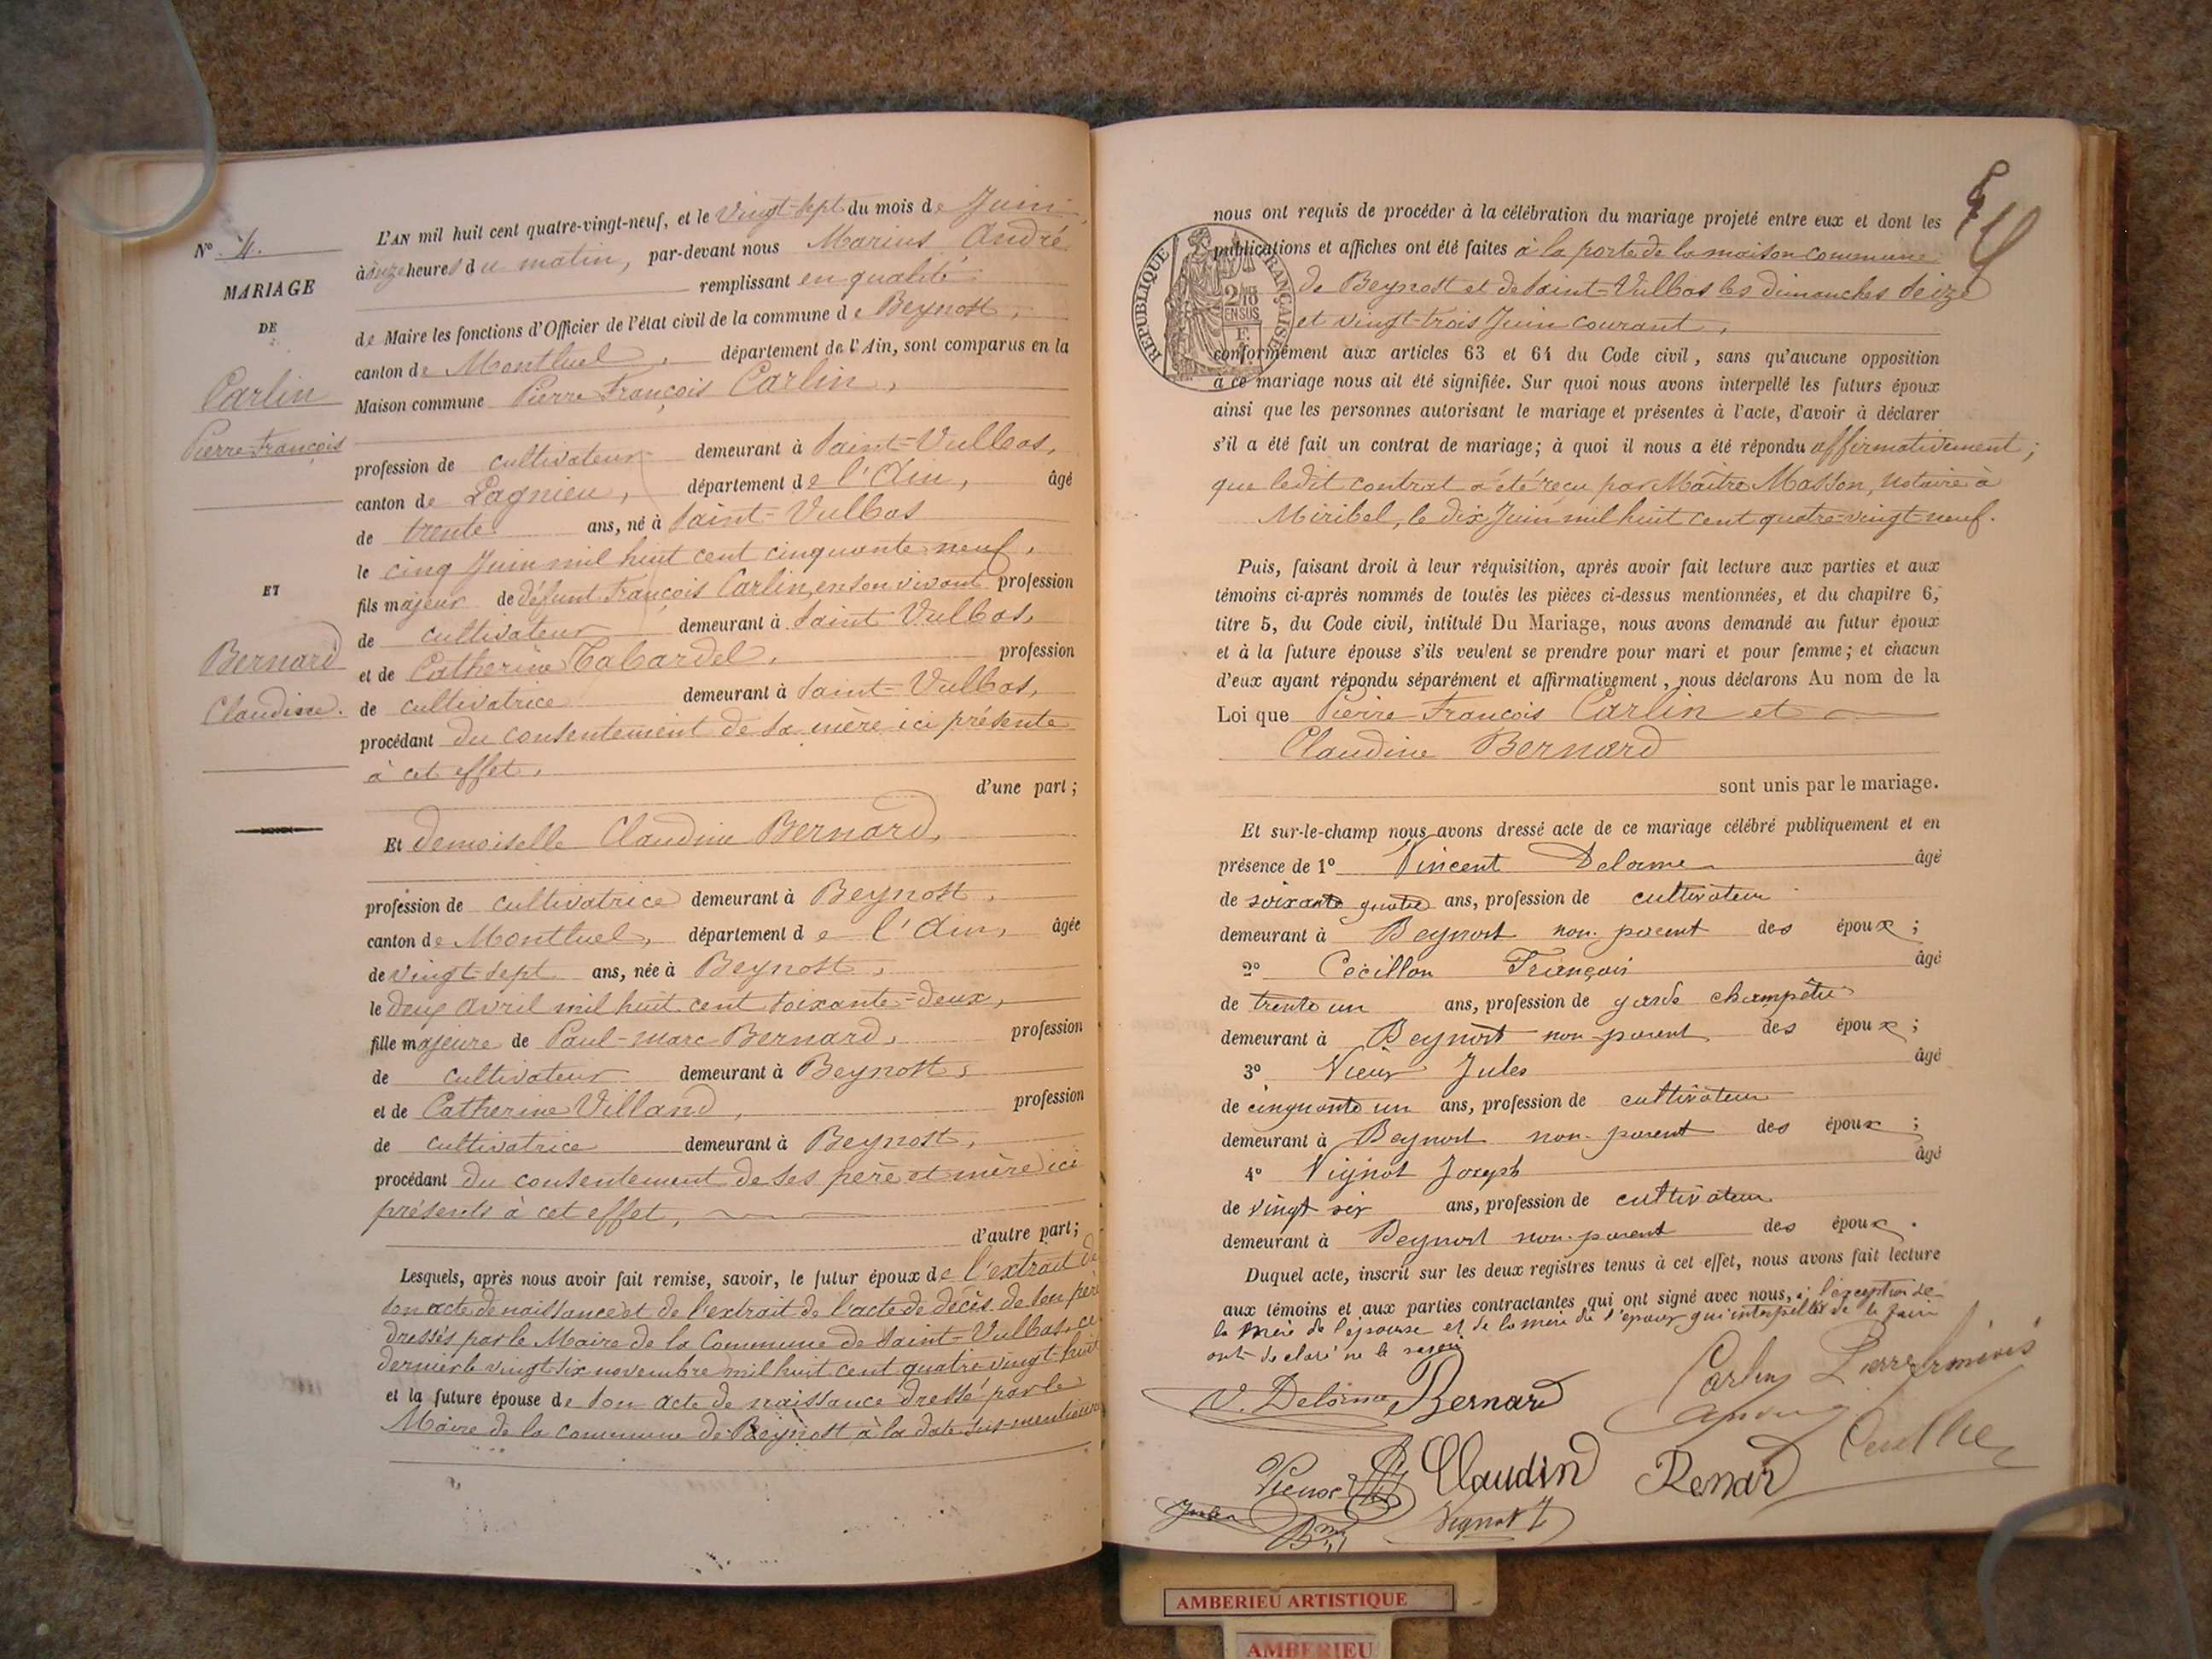 N° 4.
MARIAGE
DE
Carlin
Pierre-François
ET
Bernard
Claudine.
L'AN mil huit cent quatre-vingt-neuf, et le vingt-sept du mois de Juin
à onze heures du matin, par-devant nous Marius André
remplissant en qualité
de Maire les fonctions d'Officier de l'état civil de la commune de Beynost,
canton de Montluel, département de l'Ain, sont comparus en la
Maison commune Pierre François Carlin,
profession de cultivateur demeurant à Saint-Vulbas,
canton de Lagnieu, département de l'Ain, âgé
de trente ans, né à Saint-Vulbas
le cinq Juin mil huit cent cinquante neuf,
fils majeur de défunt François Carlin, en son vivant profession
de cultivateur demeurant à Saint Vulbas,
et de Catherine Tabardel, profession
de cultivatrice demeurant à Saint-Vulbas,
procédant du consentement de sa mère ici présente
à cet effet,
d'une part;
Et demoiselle Claudine Bernard,
profession de cultivatrice demeurant à Beynost,
canton de Montluel, département de l'Ain, âgée
de vingt-sept ans, née à Beynost,
le deux Avril mil huit cent soixante-deux,
fille majeure de Paul-Marc Bernard, profession
de cultivateur demeurant à Beynost,
et de Catherine Villand, profession
de cultivatrice demeurant à Beynost,
procédant du consentement de ses père et mère ici
présents à cet effet,
d'autre part;
Lesquels, après nous avoir fait remise, savoir, le futur époux de l'extrait de
son acte de naissance et de l'extrait de l'acte de décès de son père
dressés par le Maire de la Commune de Saint-Vulbas, ce
dernier le vingt-six novembre mil huit cent quatre vingt-huit
et la future épouse de son acte de naissance dressé par le
Maire de la commune de Beynost à la date sus-mentionnée
nous ont requis de procéder à la célébration du mariage projeté entre eux et dont les
publications et affiches ont été faites à la porte de la maison commune
de Beynost et de Saint-Vulbas les dimanches seize
et vingt-trois Juin courant,
RÉPUBLIQUE FRANÇAISE
2/10
EN SUS
F.
conformément aux articles 63 et 64 du Code civil, sans qu'aucune opposition
à ce mariage nous ait été signifiée. Sur quoi nous avons interpellé les futurs époux
ainsi que les personnes autorisant le mariage et présentes à l'acte, d'avoir à déclarer
s'il a été fait un contrat de mariage; à quoi il nous a été répondu affirmativement;
que ledit contrat a été reçu par Maître Masson, notaire à
Miribel, le dix Juin mil huit cent quatre-vingt-neuf.
Puis, faisant droit à leur réquisition, après avoir fait lecture aux parties et aux
témoins ci-après nommés de toutes les pièces ci-dessus mentionnées, et du chapitre 6,
titre 5, du Code civil, intitulé Du Mariage, nous avons demandé au futur époux
et à la future épouse s'ils veulent se prendre pour mari et pour femme; et chacun
d'eux ayant répondu séparément et affirmativement, nous déclarons Au nom de la
Loi que Pierre-François Carlin et
Claudine Bernard
sont unis par le mariage.
Et sur-le-champ nous avons dressé acte de ce mariage célébré publiquement et en
présence de 1° Vincent Delorme âgé
de soixante quatre ans, profession de cultivateur
demeurant à Beynost non parent des époux;
2° Cécillon François âgé
de trente un ans, profession de garde champêtre
demeurant à Beynost non parent des époux;
3° Vieux Jules âgé
de cinquante un ans, profession de cultivateur
demeurant à Beynost non parent des époux;
4° Vignot Joseph âgé
de vingt six ans, profession de cultivateur
demeurant à Beynost non parent des époux.
Duquel acte, inscrit sur les deux registres tenus à cet effet, nous avons fait lecture
aux témoins et aux parties contractantes qui ont signé avec nous, à l'exception de
la mère de l'épouse et de la mère de l'époux qui interpellés de le faire
ont déclaré ne le savoir
V. Delorme Bernard Carlin Pierre
Vieux Claudin Renard
Jules Vignot J
AMBERIEU ARTISTIQUE
AMBERIEU